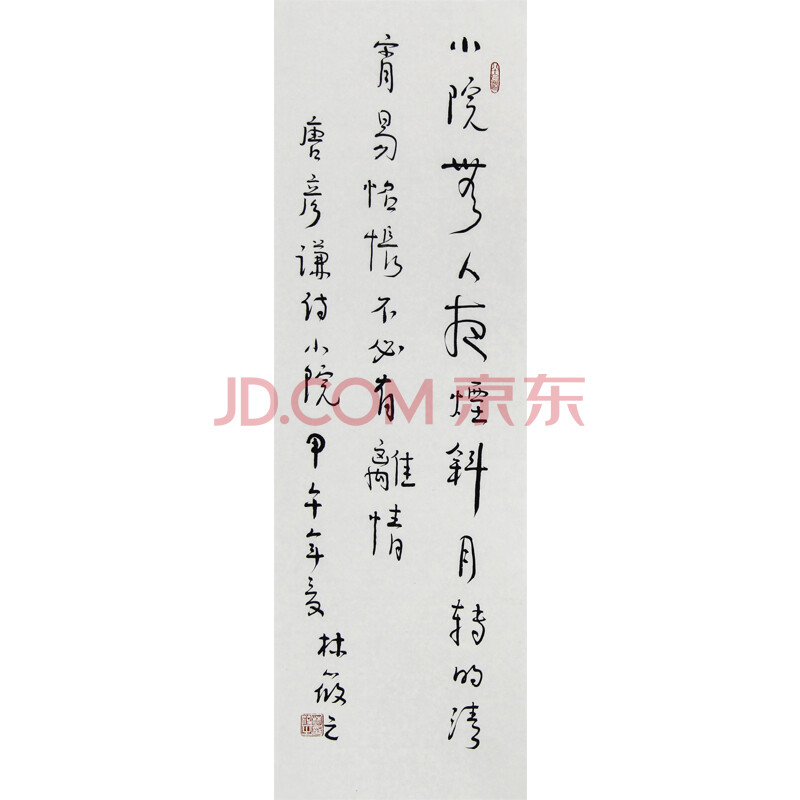 小院無人夜煙斜月轉明清
宵易惆悵不必有離情
唐彥謙詩小院甲午年夏
林筱之
JD.COM 京东